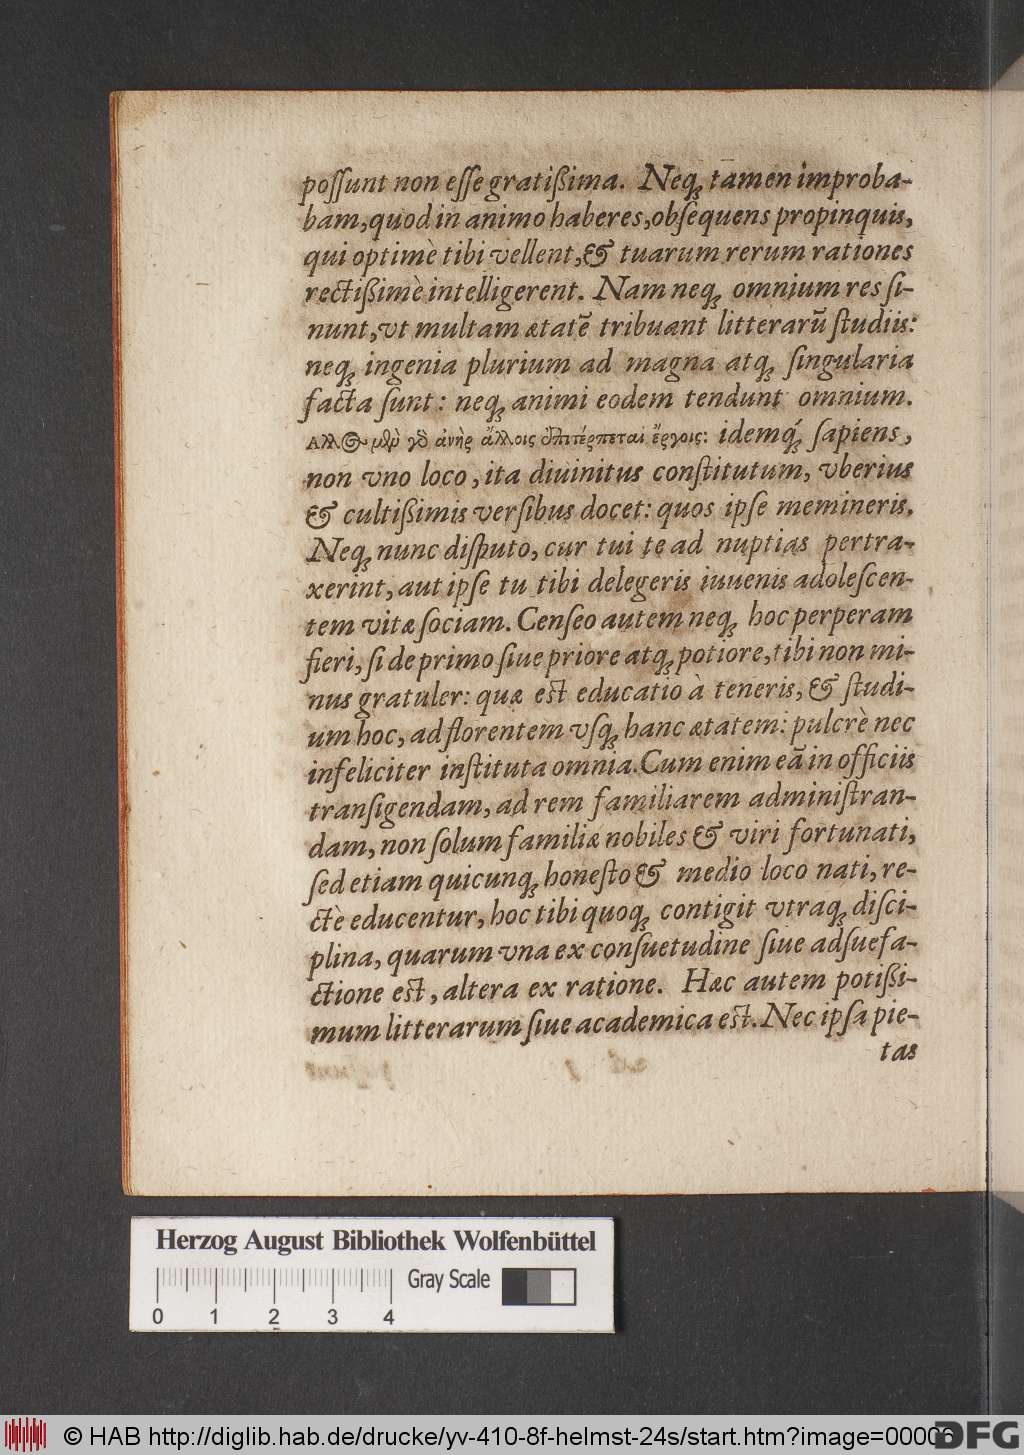 possunt non esse gratißima. Neq; tamen improba-
bam, quod in animo haberes, obsequens propinquis,
qui optimè tibi vellent, & tuarum rerum rationes
rectißimè intelligerent. Nam neq; omnium res si-
nunt, vt multam ætatẽ tribuant litterarũ studiis:
neq; ingenia plurium ad magna atq; singularia
facta sunt: neq; animi eodem tendunt omnium.
Αλλος μὲν γὸ ἀνὴρ ἄλλοις ἐπιτέρπεται ἔργοις: idemq́; sapiens,
non vno loco, ita diuinitus constitutum, vberius
& cultißimis versibus docet: quos ipse memineris.
Neq; nunc disputo, cur tui te ad nuptias pertra-
xerint, aut ipse tu tibi delegeris iuuenis adolescen-
tem vitæ sociam. Censeo autem neq; hoc perperam
fieri, si de primo siue priore atq; potiore, tibi non mi-
nus gratuler: quæ est educatio à teneris, & studi-
um hoc, ad florentem vsq; hanc ætatem: pulcrè nec
infeliciter instituta omnia. Cum enim eã in officiis
transigendam, ad rem familiarem administran-
dam, non solum familiæ nobiles & viri fortunati,
sed etiam quicunq; honesto & medio loco nati, re-
ctè educentur, hoc tibi quoq; contigit vtraq; disci-
plina, quarum vna ex consuetudine siue adsuefa-
ctione est, altera ex ratione. Hæc autem potißi-
mum litterarum siue academica est. Nec ipsa pie-
tas
Herzog August Bibliothek Wolfenbüttel
Gray Scale
0 1 2 3 4
© HAB http://diglib.hab.de/drucke/yv-410-8f-helmst-24s/start.htm?image=00006
DFG